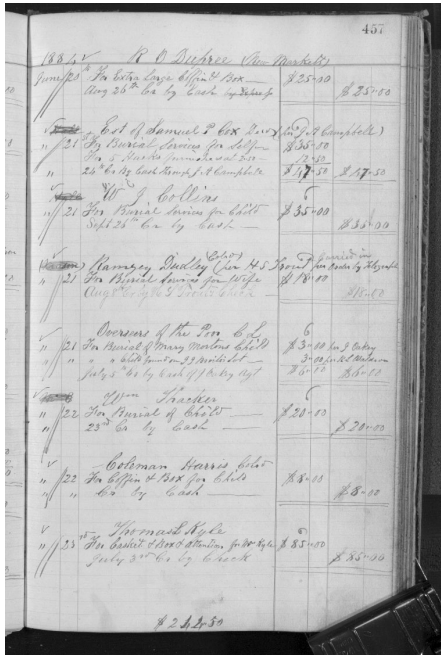 457
1884 R O Dupree (New Market)
June 20th For Extra Large Coffin & Box — $25-00
Aug 26th Cr by Cash $25-00
Est of Samuel P Cox Decd (per J A Campbell)
" 21 For Burial Services for Self $35-00
For 5 12-50
" 24th Cr By Cash J A Campbell $47-50 $47-50
W J Collins
" 21 For Burial Services for Child $35-00
Sept 26th Cr by Cash — $35-00
Ramsey Dudley Cold (per H S
" 21 For Burial Services for Wife $18-00
Aug $18-00
Overseers of the Poor C L
" 21 For Burial of Mary Mortons Child $3-00 per J Oakey
" " " Child found on 3-00 per
" July Cr by Cash of J Oakey Agt $6-00 $6-00
Wm Tracker
" 22 For Burial of Child — $20-00
" 23rd Cr by Cash — $20-00
Coleman Harris Cold
" 22 For Coffin & Box for Child $8-00
" Cr by Cash — $8-00
Thomas Kyle
" 23rd For Casket & Box & attention for Kyle $85-00
" July 3rd Cr by Check $85-00
$242-50